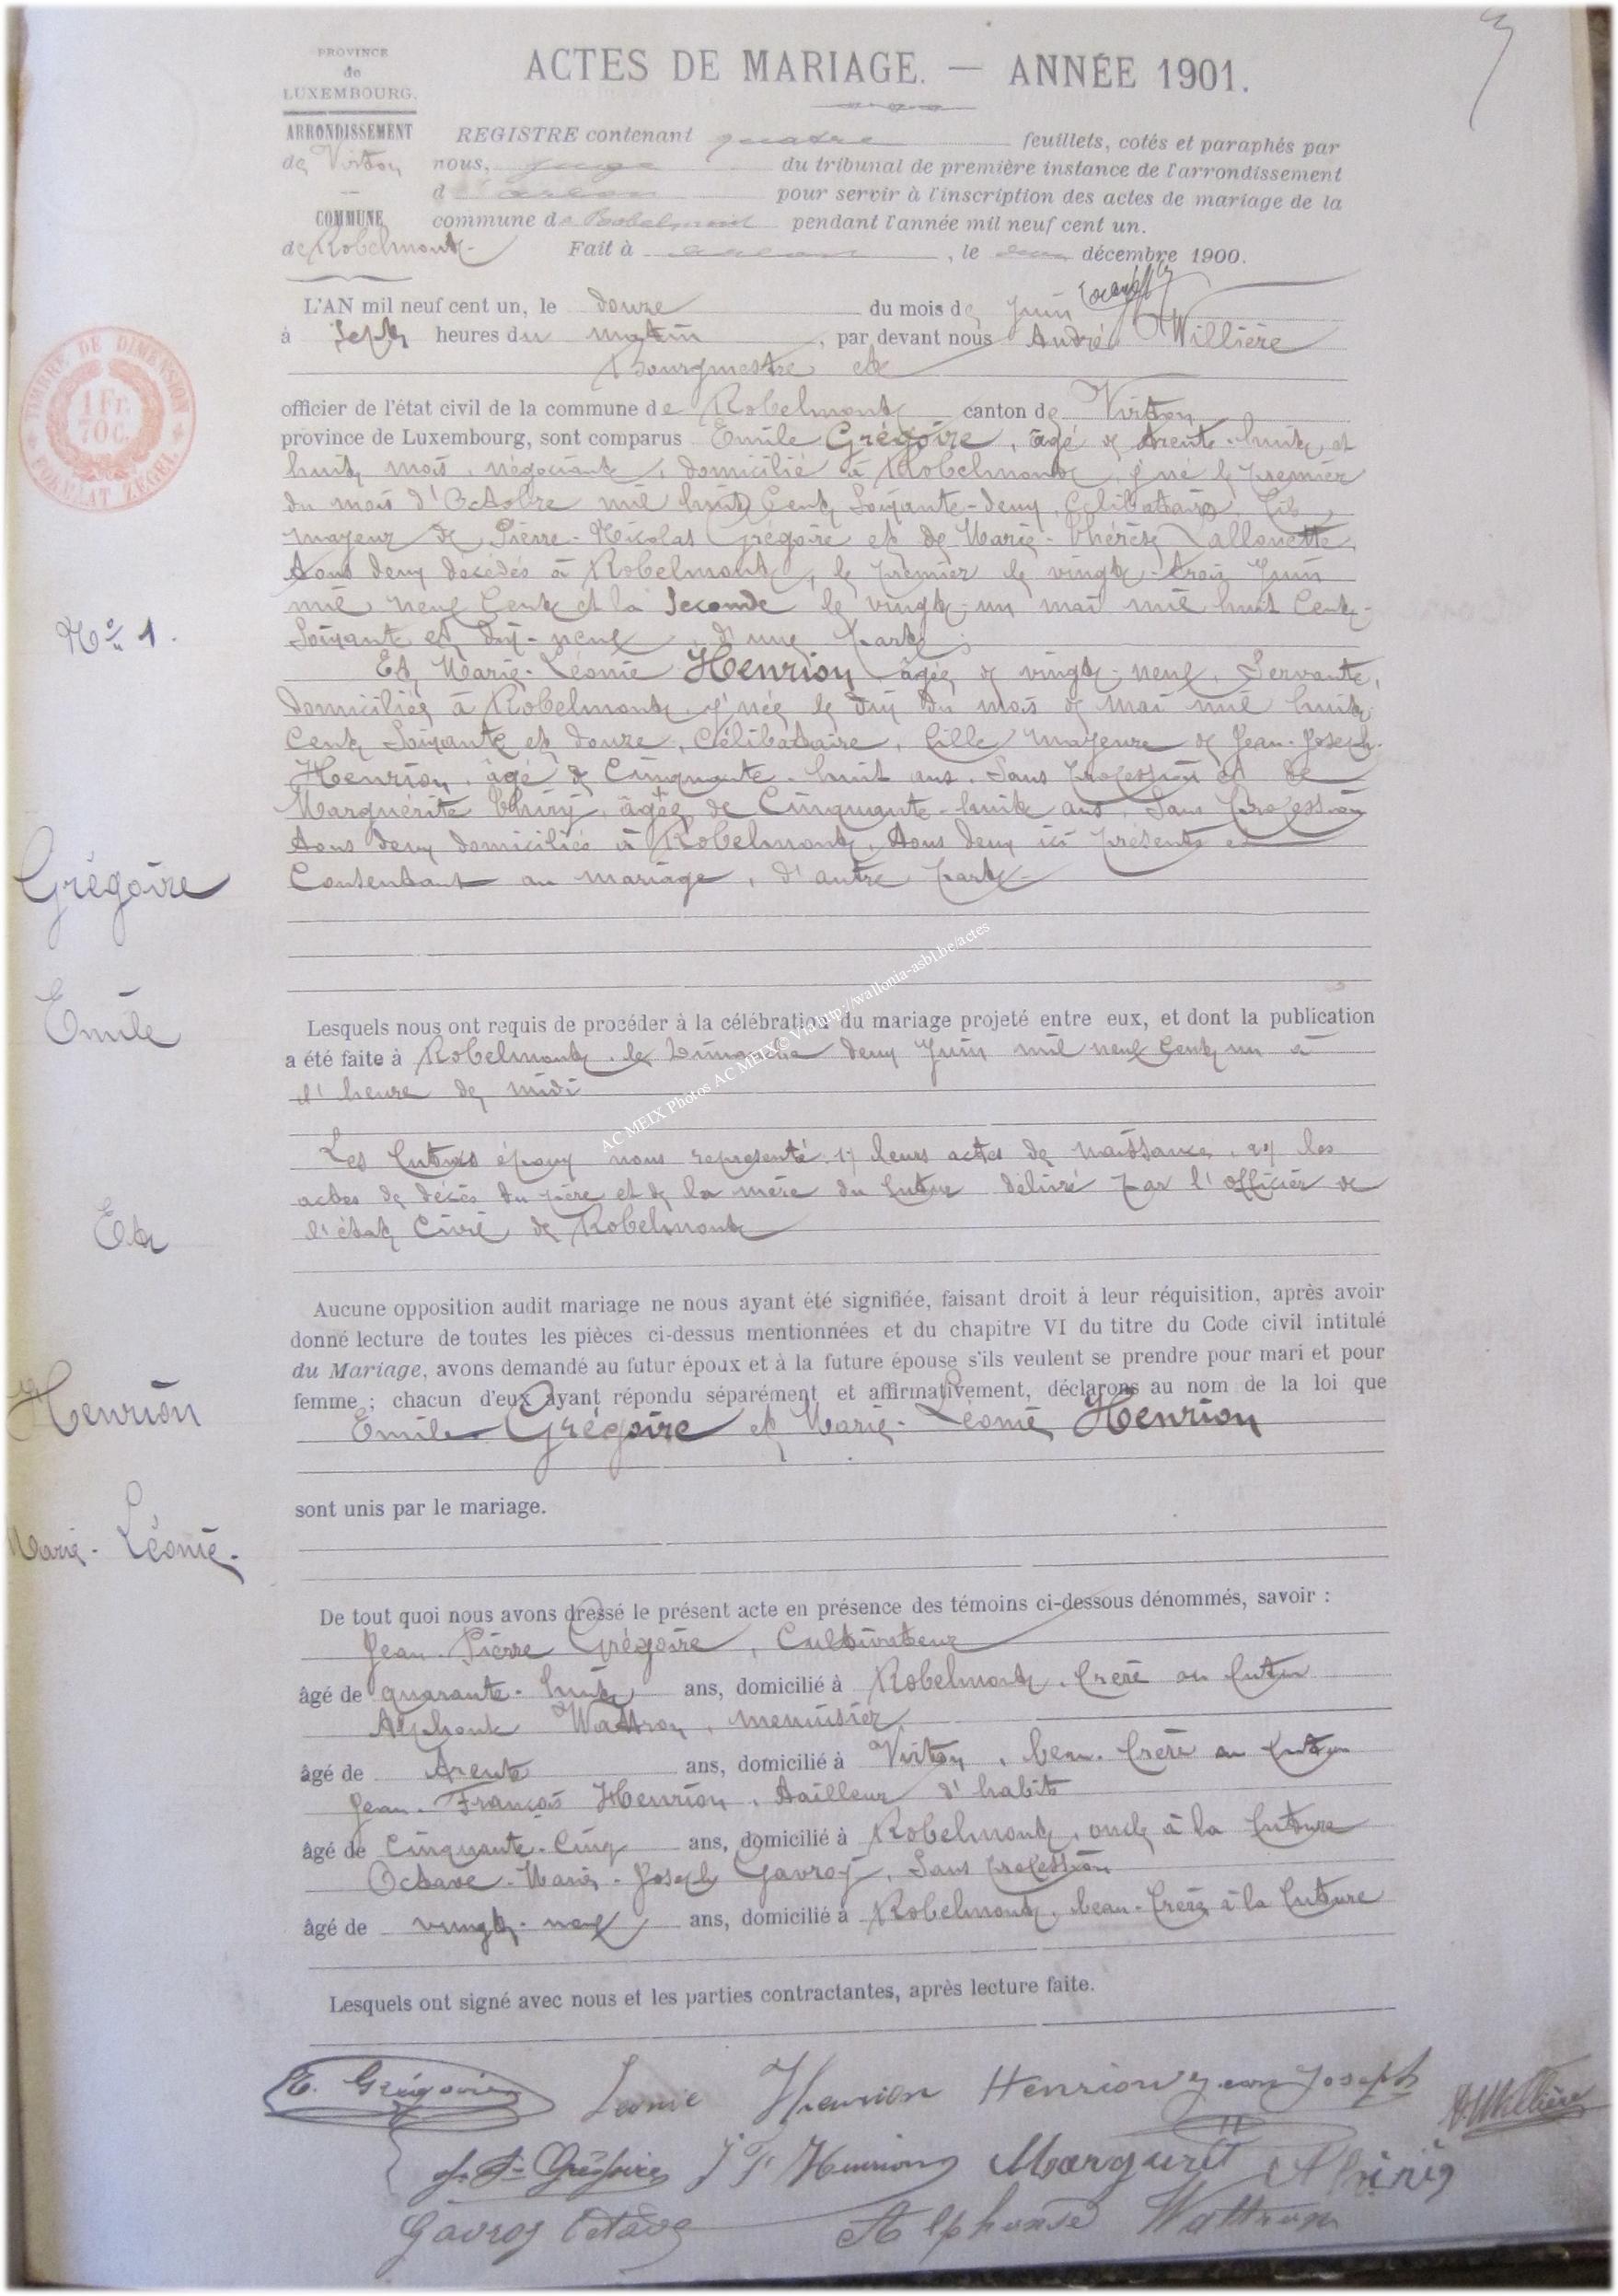 PROVINCE
de
LUXEMBOURG.
ARRONDISSEMENT
de Virton
COMMUNE
de Robelmont
ACTES DE MARIAGE. — ANNÉE 1901.
REGISTRE contenant quatre feuillets, cotés et paraphés par
nous, juge du tribunal de première instance de l'arrondissement
d'Arlon pour servir à l'inscription des actes de mariage de la
commune de Robelmont pendant l'année mil neuf cent un.
Fait à Arlon, le deux décembre 1900.
TIMBRE DE DIMENSION
1 Fr.
70 C.
FORMAAT ZEGEL
L'AN mil neuf cent un, le douze du mois de Juin
à Sept heures du matin, par devant nous André Willière
Bourgmestre et
officier de l'état civil de la commune de Robelmont canton de Virton
province de Luxembourg, sont comparus Emile Grégoire, âgé de trente-huit et
huit mois, négociant, domicilié à Robelmont, y né le premier
du mois d'Octobre mil huit Cent Soixante-deux, Célibataire, fils
majeur de Pierre-Nicolas Grégoire et de Marie-Thérèse Lallouette,
tous deux décédés à Robelmont, le premier le vingt-trois Juin
mil neuf Cent et la Seconde le vingt-un mai mil huit Cent-
Soixante et dix-neuf, d'une part;
Et Marie-Léonie Henrion âgée de vingt-neuf, Servante,
domiciliée à Robelmont, y née le dix du mois de mai mil huit
Cent Soixante et douze, Célibataire, fille majeure de Jean-Joseph
Henrion, âgé de Cinquante-huit ans, Sans profession et de
Marguérite Thiry, âgée de Cinquante-huit ans, Sans profession
tous deux domiciliés à Robelmont, tous deux ici présents et
Consentant au mariage, d'autre part.
No 1.
Grégoire
Emile
Et
Henrion
Marie-Léonie.
Lesquels nous ont requis de procéder à la célébration du mariage projeté entre eux, et dont la publication
a été faite à Robelmont, le Dimanche deux Juin mil neuf Cent un à
l'heure de midi
AC MEIX Photos AC MEIX© Via http://wallonia-asbl.be/actes
Les futurs époux nous représenté 1) leurs actes de naissance, 2) les
actes de décès du père et de la mère du futur délivré par l'officier de
l'état Civil de Robelmont
Aucune opposition audit mariage ne nous ayant été signifiée, faisant droit à leur réquisition, après avoir
donné lecture de toutes les pièces ci-dessus mentionnées et du chapitre VI du titre du Code civil intitulé
du Mariage, avons demandé au futur époux et à la future épouse s'ils veulent se prendre pour mari et pour
femme ; chacun d'eux ayant répondu séparément et affirmativement, déclarons au nom de la loi que
Emile Grégoire et Marie-Léonie Henrion
sont unis par le mariage.
De tout quoi nous avons dressé le présent acte en présence des témoins ci-dessous dénommés, savoir :
Jean-Pierre Grégoire, Cultivateur
âgé de quarante-huit ans, domicilié à Robelmont, frère au futur
Alphonse Wattron, menuisier
âgé de trente ans, domicilié à Virton, beau-frère au futur
Jean-François Henrion, tailleur d'habits
âgé de Cinquante-Cinq ans, domicilié à Robelmont, oncle à la future
Octave-Marie-Joseph Gavroy, Sans profession
âgé de vingt-neuf ans, domicilié à Robelmont, beau-frère à la future
Lesquels ont signé avec nous et les parties contractantes, après lecture faite.
E. Grégoire Leonie Henrion Henrion Jean Joseph A. Willière
J. P. Grégoire J F Henrion Margurit Thirie
Gavroy Octave Alphonse Wattron